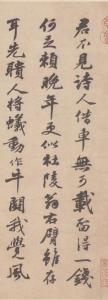 君不見詩人借車無可載留得一錢
何足賴晚年更似杜陵翁右臂雖存
耳先聵人將蟻動作牛鬭我覺風